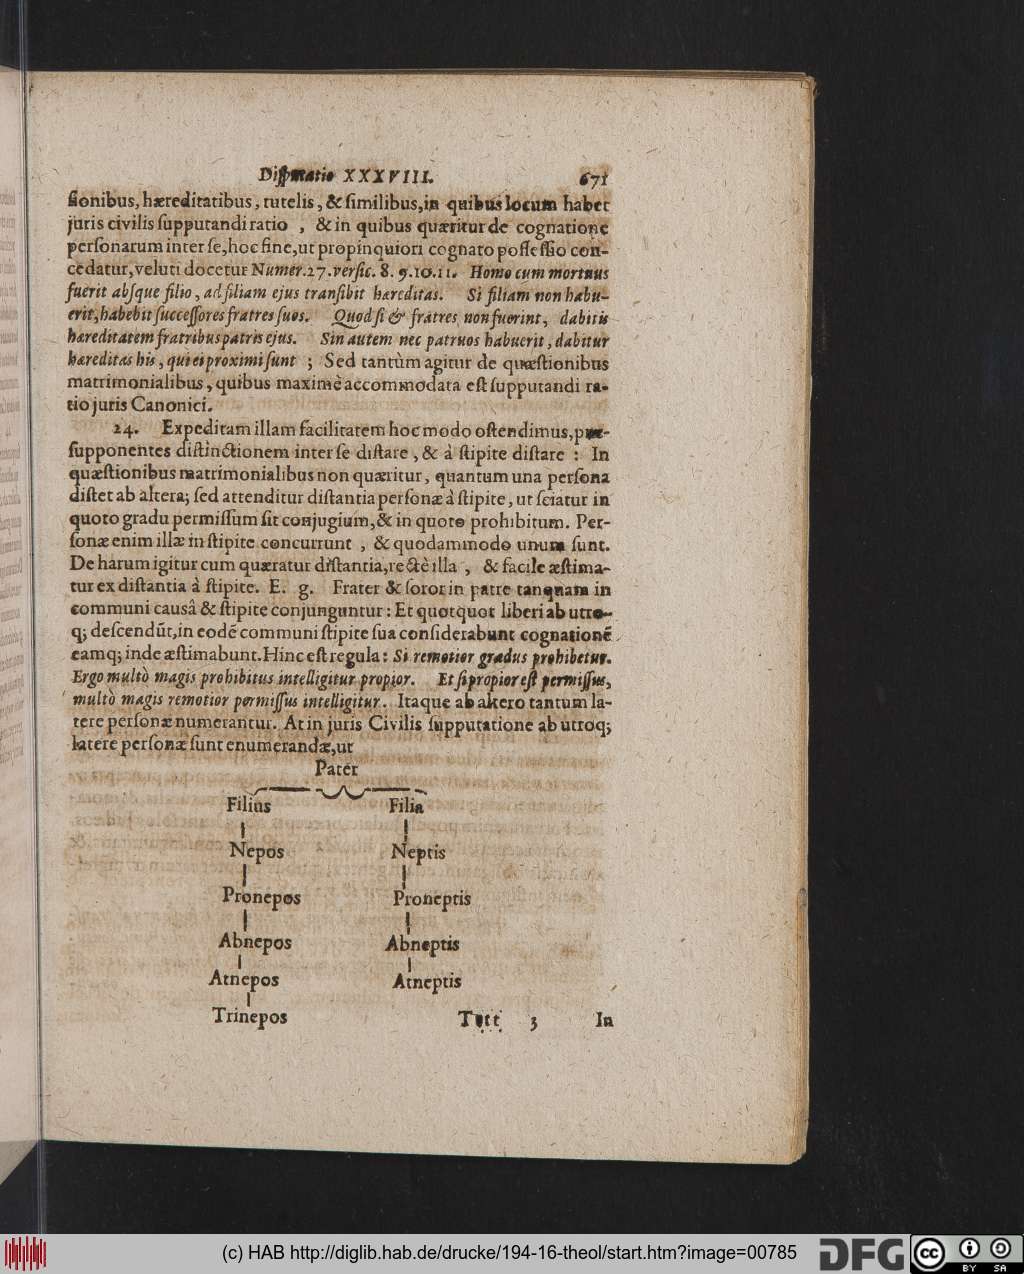 Disputatio XXXVIII. 671
sionibus, hæreditatibus, tutelis, & similibus, in quibus locum habet
juris civilis supputandi ratio , & in quibus quæritur de cognatione
personarum inter se, hoc fine, ut propinquiori cognato possessio con-
cedatur, veluti docetur Numer. 27. versic. 8. 9. 10. 11. Homo cum mortuus
fuerit absque filio, ad filiam ejus transibit hæreditas. Si filiam non habu-
erit, habebit successores fratres suos. Quod si & fratres non fuerint, dabitis
hæreditatem fratribus patris ejus. Sin autem nec patruos habuerit, dabitur
hæreditas his, qui ei proximi sunt ; Sed tantùm agitur de quæstionibus
matrimonialibus, quibus maximè accommodata est supputandi ra-
tio juris Canonici.
24. Expeditam illam facilitatem hoc modo ostendimus, præ-
supponentes distinctionem inter se distare, & à stipite distare : In
quæstionibus matrimonialibus non quæritur, quantum una persona
distet ab altera; sed attenditur distantia personæ à stipite, ut sciatur in
quoto gradu permissum sit conjugium, & in quoto prohibitum. Per-
sonæ enim illæ in stipite concurrunt , & quodammodo unum sunt.
De harum igitur cum quæratur distantia, rectè illa , & facile æstima-
tur ex distantia à stipite. E. g. Frater & soror in patre tanquam in
communi causâ & stipite conjunguntur : Et quotquot liberi ab utro-
q; descendũt, in eodẽ communi stipite sua considerabunt cognationẽ
eamq; inde æstimabunt. Hinc est regula : Si remotior gradus prohibetur.
Ergo multò magis prohibitus intelligitur propior. Et si propior est permissus,
multò magis remotior permissus intelligitur. Itaque ab altero tantum la-
tere personæ numerantur. At in juris Civilis supputatione ab utroq;
latere personæ sunt enumerandæ, ut
Pater
Filius Filia
Nepos Neptis
Pronepos Proneptis
Abnepos Abneptis
Atnepos Atneptis
Trinepos
Tttt 3 In
(c) HAB http://diglib.hab.de/drucke/194-16-theol/start.htm?image=00785
DFG
cc BY SA